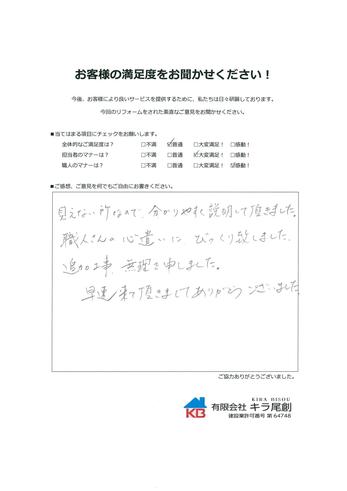 お客様の満足度をお聞かせください！
今後、お客様により良いサービスを提供するために、私たちは日々研鑽しております。
今回のリフォームをされた素直なご意見をお聞かせください。
■当てはまる項目にチェックをお願いします。
全体的なご満足度は？ □不満 ☑普通 □大変満足！ □感動！
担当者のマナーは？ □不満 □普通 ☑大変満足！ □感動！
職人のマナーは？ □不満 □普通 □大変満足！ ☑感動！
■ご感想、ご意見を何でもご自由にお書きください。
見えない所なので、分かりやすく説明して頂きました。
職人さんの心遣いに、びっくり致しました。
追加工事、無理を申しました。
早速来て頂きましてありがとうございました
ご協力ありがとうございました。
KIRA BISOU
KB 有限会社 キラ尾創
建設業許可番号 第64748